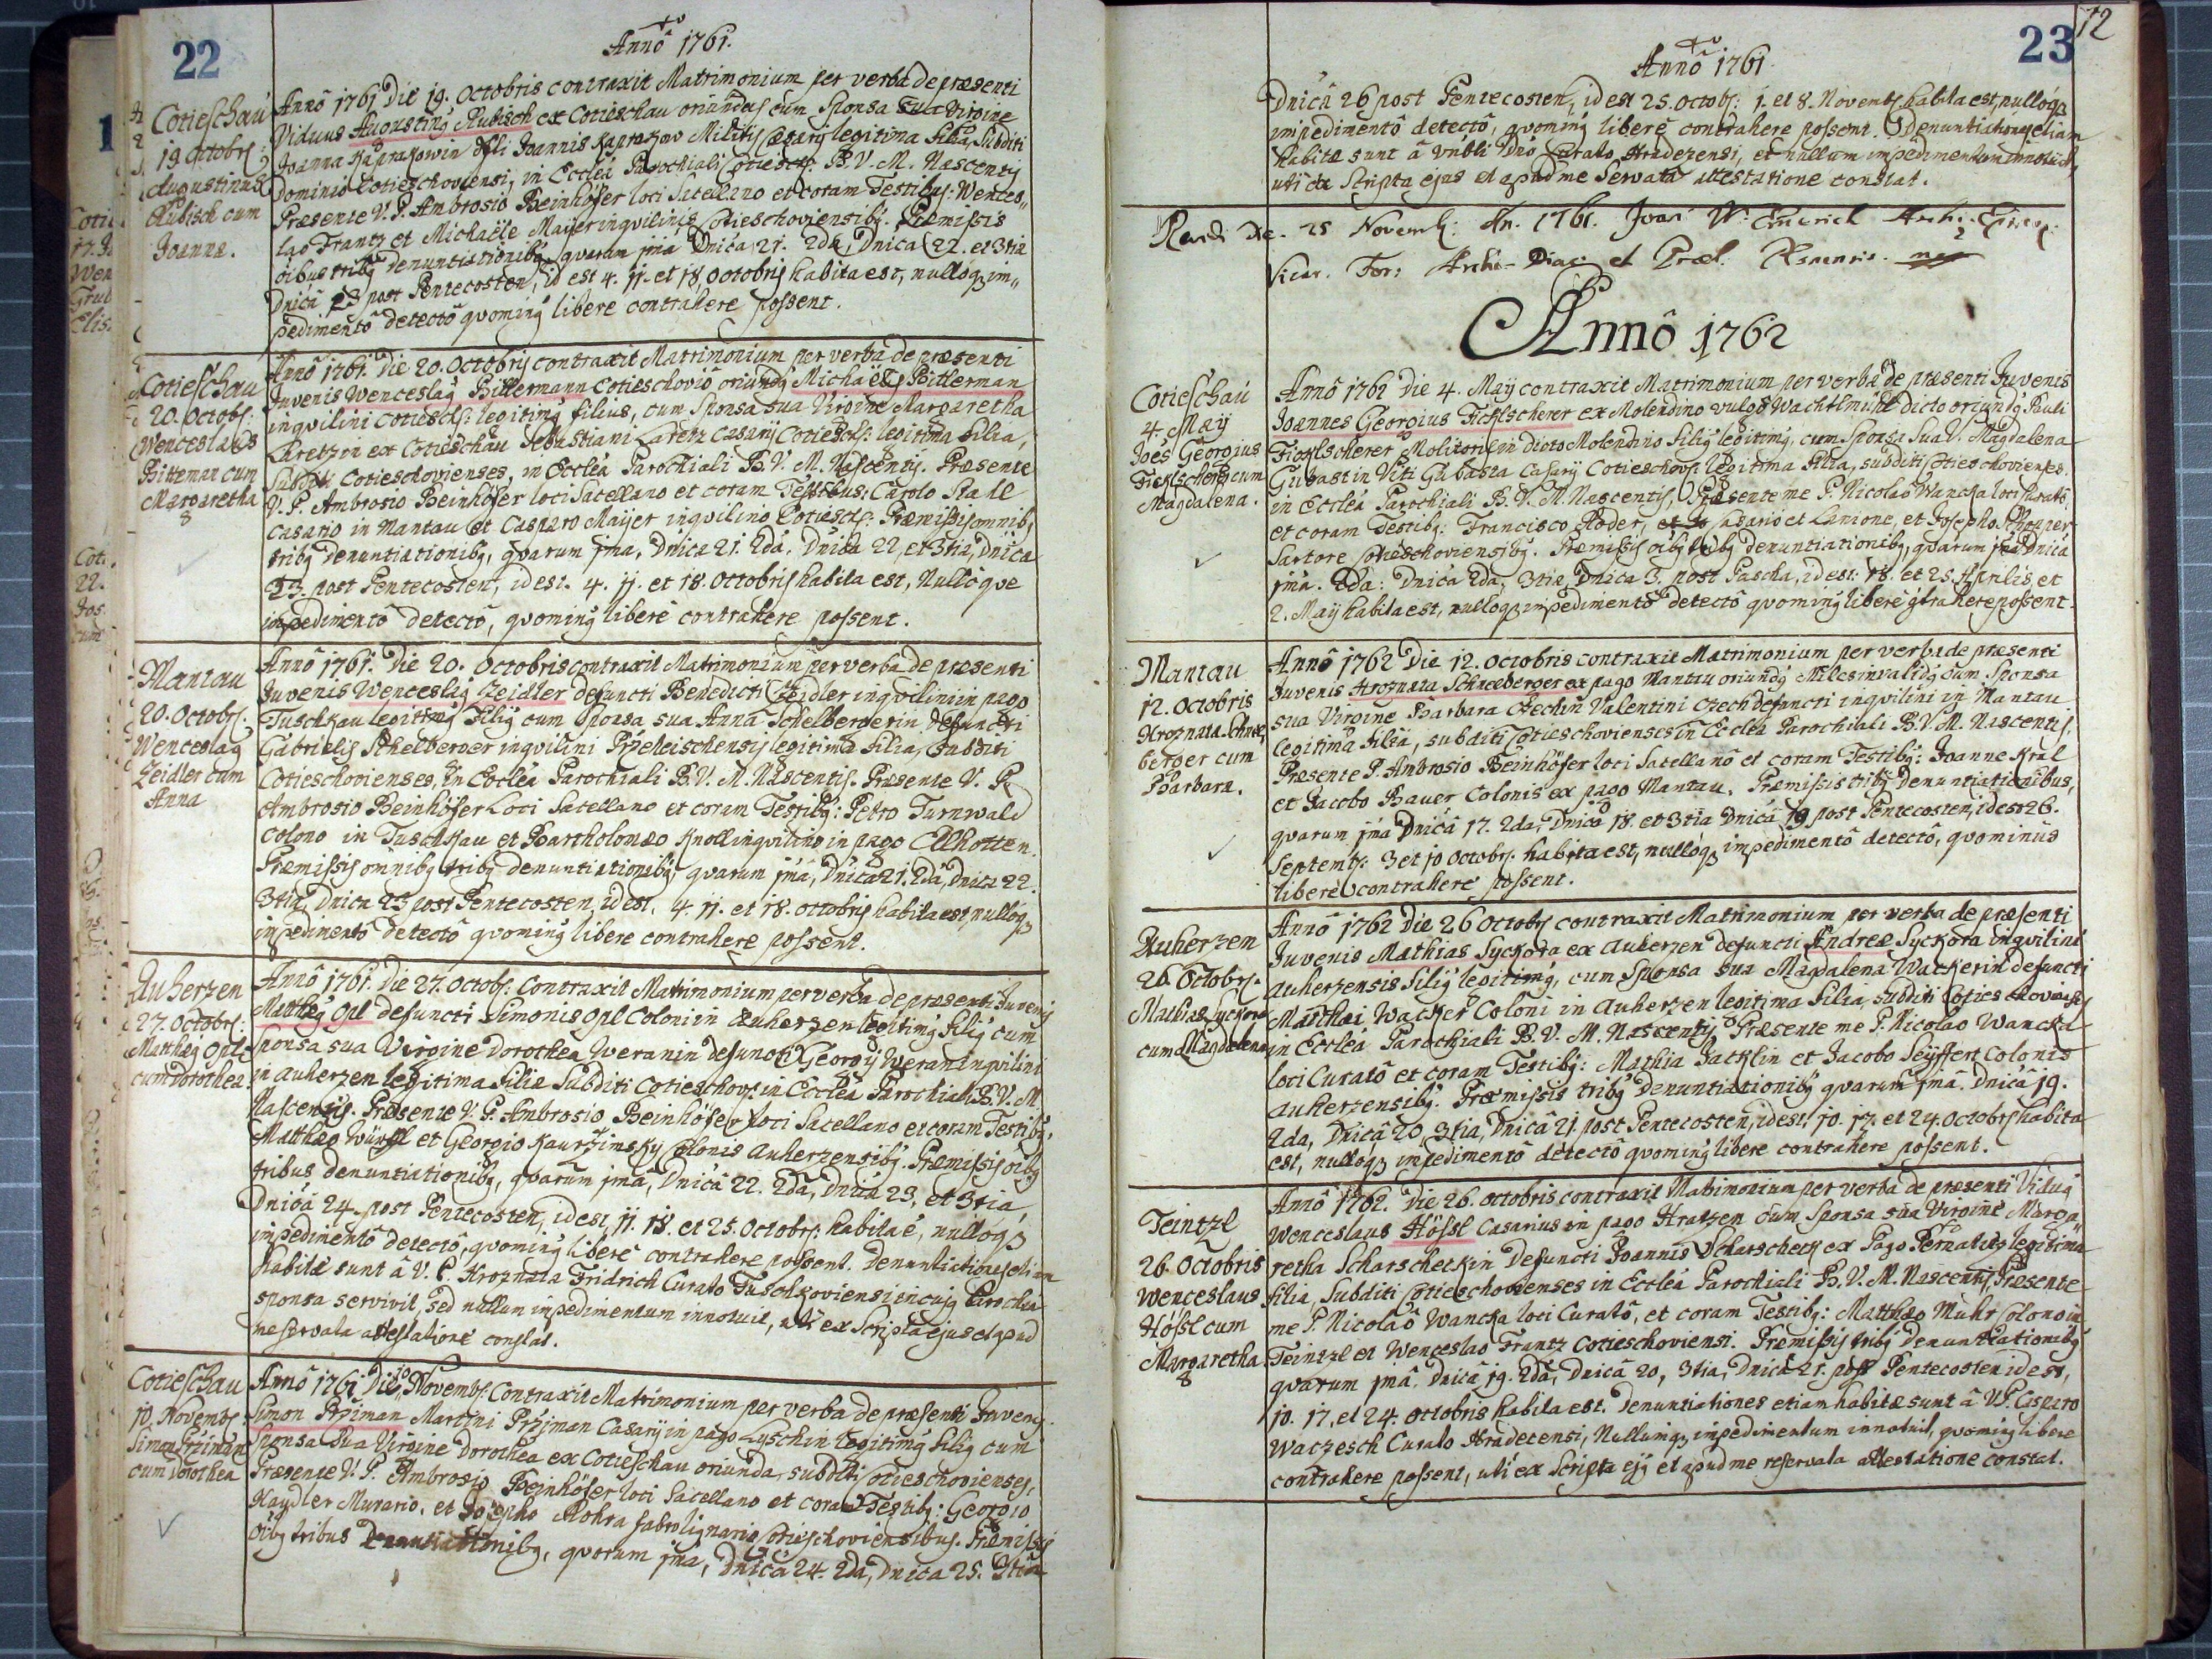 22
Annô 1761.
Cotieschau
19 octobrs:
Augustinus
Rubisch cum
Joanna.
Annô 1761 Die 19. Octobris contraxit Matrimonium per verba de præsenti
Viduus Augustinꝰ Rubisch ex Cotieschau oriundus cum Sponsa sua Virgine
Joanna Joannis Militis legitima filia, Subditi
Dominio Cotieschoviensi, in Ecclêa Parochiali B. V. M. Nascentis
Præsente V. P. Ambrosio Beinhöfer loci Sacellano et coram Testibus: Wences„
lao Frantz et Michaële Maÿer inqvilinis Cotieschoviensibꝰ. Præmissis
oîbus tribꝰ denuntiationibꝰ, qvarum jma Dnîca 21. 2da, Dnica 22. et 3tia
Dnîcâ 23 post Pentecosten, id est 4. 11. et 18. octobris habita est, nulloqꝫ im„
pedimentô detectô qvominꝰ libere contrahere possent.
Cotieschau
20. Octobs.
Wenceslaus
Bitterman cum
Margaretha
Annô 1761. Die 20. Octobris contraxit Matrimonium per verba de præsenti
Juvenis Wenceslaꝰ Bittermann Cotieschoviô oriundꝰ Michaëlis Bitterman
inqvilini Cotiesch: legitimꝰ filius, cum Sponsa sua Virgine Margaretha
Laretzin ex Cotieschau Sebastiani Laretz Casarij Cotiesch: legitima filia,
Subditi Cotieschovienses, in Ecclêa Parochiali B. V. M. Nascentis. Præsente
V. P. Ambrosio Beinhöfer loci Sacellano et coram Testibus: Carolo Stadl
casario in Mantau et Casparo Maÿer inqvilino Cotiesch: Præmissis omnibꝰ
tribꝰ denuntiationibꝰ, qvarum jma, Dnica 21. 2dâ, Dnica 22, et 3tia, Dnica
23. post Pentecosten, id est. 4. 11. et 18. octobris habita est, Nullôque
impedimentô detectô, qvominꝰ liberè contrahere possent.
Mantau
20. Octobrs.
Wenceslaꝰ
Zeidler cum
Anna
Annô 1761. Die 20. Octobris contraxit Matrimonium per verba de præsenti
Juvenis Wenceslaꝰ Zeidler defuncti Benedicti Zeidler inqvilini in pago
Tuschkau legitimꝰ filiꝰ cum Sponsa sua Anna Schelbergerin defuncti
Gabrielis Schelberger inqvilini legitima filia, Subditi
Cotieschovienses, in Ecclêa Parochiali B. V. M. Nascentis. Præsente V. P.
Ambrosio Beinhöfer Loci Sacellano et coram Testibꝰ: Petro Turnwald
colono in Tuschkau et Bartholomæo Knoll inqvilino in pago Ellhotten.
Præmissis omnibꝰ tribꝰ denuntiationibꝰ, qvarum jmâ, Dnica 21. 2dâ, Dnica 22.
3tia, Dnica 23 post Pentecosten, id est, 4. 11. et 18. octobris habita est, nulloqꝫ
impedimentô detectô qvominꝰ libere contrahere possent.
Auherzen
27. Octobrs:
Mattheꝰ Opl
cum Dorothea
Annô 1761. Die 27. Octobs: Contraxit Matrimonium per verba de præsenti Juvenis
Mattheꝰ Opl defuncti Simonis Opl Coloni in Auherzen legitimꝰ filiꝰ cum
sponsa sua Virgine Dorothea Weranin defuncti Georgÿ Weran Inqvilini
in Auherzen legitima filia Subditi Cotieschovs: in Ecclêa Parochiali B. V. M.
Nascentis. Præsente V. P. Ambrosio Beinhöfer loci Sacellano et coram Testibꝰ:
Matthæo Würffl et Georgio Kaurzimskÿ colonis Auherzensibꝰ. Præmissis oîbꝰ
tribus denuntiationibꝰ, qvarum jmâ, Dnicâ 22. 2da, Dnica 23, et 3tia,
Dnicâ 24. post Pentecosten, id est, 11. 18. et 25. Octobrs: habita ê, nulloqꝫ
impedimentô detectô, qvominꝰ liberè contrahere possent. Denuntiationes etiam
habitæ sunt â V. P. Hroznata Fridrich Curato Tuschkoviensi in cujꝰ Parochia
sponsa servivit, sed nullum impedimentum innotuit, uti ex Scripta ejus et apud
me servata attestatione constat.
Cotieschau
10. Novembs
Simon Prziman
cum Dorothea
Annô 1761 Die 10 Novembs: Contraxit Matrimonium per verba de præsenti Juvenis
Simon Prziman Martini Prziman Casarÿ in pago Lyschin legitimꝰ filiꝰ cum
Sponsa Sua Virgine Dorothea ex Cotieschau oriunda, subditi Cotieschovienses,
Præsente V. P. Ambrosio Beinhöfer loci Sacellano et coram Testibꝰ: Georgio
Haydler Murario, et Josepho Rohra fabro lignario Cotieschoviensibus. Præmissis
oîbꝰ tribus Denuntiationibꝰ, qvarum jma, Dnicâ 24. 2dâ, Dnica 25. 3tia
23
12
Annô 1761
Dnicâ 26 post Pentecosten, id est 25. Octobs: 1. et 8. Novembs habita est, nullôqꝫ
impedimentô detectô, qvominꝰ liberè contrahere possent. Denuntiationes etiam
habitæ sunt â Dno Curato Hradezensi, et nullum impedimentum innotuit,
uti ex Scripta ejus et apud me Servata attestatione constat.
25 Novemb: An. 1761. Joan: W:
Vicar. For: Archi-Diac: et
Annô 1762
Cotieschau
4. Maÿ
Joês Georgius
Ficklscherer cum
Magdalena.
Annô 1762 Die 4. Maÿ contraxit Matrimonium per verba de præsenti Juvenis
Joannes Georgius Ficklscherer ex Molendino vulgô Wachtlmühl dicto oriundꝰ Pauli
Ficklscherer Molitoris in dicto Molendino filiꝰ legitimꝰ, cum Sponsa Sua V. Magdalena
Gubastin Viti Casarÿ Cotieschovs: legitima filia, subditi Cotieschovienses.
in Ecclêa Parochiali B. V. M. Nascentis, Præsente me P. Nicolao Wancka loci Curatô,
et coram Testibꝰ: Francisco Röder, Casario et Lanione, et Josepho
Sartore Cotieschoviensibꝰ. Præmissis oîbꝰ tribꝰ denuntiationibꝰ, qvarum jmâ Dnicâ
jmâ. 2dâ: Dnica 2dâ, 3tia, Dnica 3. post Pascha, id est: 18. et 25. Aprilis, et
2. Maÿ habita est, nulloqꝫ impedimentô detectô qvominꝰ liberè contrahere possent.
Mantau
12. Octobris
Hroznata Schnee„
berger cum
Barbara.
Annô 1762 Die 12. Octobris contraxit Matrimonium per verba de præsenti
Juvenis Hroznata Schneeberger ex pago Mantau oriundꝰ Miles invalidꝰ cum Sponsa
sua Virgine Barbara Czechin Valentini Czech defuncti inqvilini in Mantau
legitimâ filiâ, subditi Cotieschovienses in Ecclêa Parochiali B. V. M. Nascentis,
Præsente P. Ambrosio Beinhöfer loci Sacellanô et coram Testibꝰ: Joanne Kral
et Jacobo Bauer Colonis ex pago Mantau. Præmissis tribꝰ Denuntiationibus,
qvarum jmâ Dnicâ 17. 2da, Dnicâ 18. et 3tia Dnicâ 19 post Pentecosten, id est 26.
Septembs: 3 et 10 Octobs: habita est, nullôqꝫ impedimentô detectô, qvominus
liberè contrahere possent.
Auherzen
26. Octobrs.
Mathias Syckora
cum Magdalena
Annô 1762 Die 26 Octobrs contraxit Matrimonium per verba de præsenti
Juvenis Mathias Syckora ex Auherzen defuncti Andreæ Syckora inqvilini
Auherzensis filiꝰ legitimꝰ, cum Sponsa sua Magdalena Wackerin defuncti
Matthæi Wacker Coloni in Auherzen legitima filia, subditi Cotieschovienses
in Ecclêâ Parochiali B. V. M. Nascentis, Præsente me P. Nicolao Wancka
loci Curatô et coram Testibꝰ: Mathia Jacklin et Jacobo Seÿffert Colonis
Auherzensibꝰ. Præmissis tribꝰ denuntiationibꝰ qvarum jmâ. Dnicâ 19.
2da, Dnicâ 20, 3tia, Dnicâ 21 post Pentecosten, id est, 10. 17. et 24. Octobrs habita
est, nullôqꝫ impedimentô detectô qvominꝰ libere contrahere possent.
Teintzl
26. Octobris
Wenceslaus
Hössl cum
Margaretha
Annô 1762. Die 26. octobris contraxit Matrimonium per verba de præsenti Viduꝰ
Wenceslaus Hössl Casarius in pago Hratzen cum Sponsa sua Virgine Marga„
retha Scharscheckin Defuncti Joannis Scharscheck ex Pago legitima
filia, Subditi Cotieschovienses in Ecclêa Parochiali B. V. M. Nascentis, Præsente
me P. Nicolaô Wancka loci Curatô, et coram Testibꝰ: Matthæo Muhr Colono in
Teintzl et Wenceslao Frantz Cotieschoviensi. Præmissis tribꝰ denuntiationibꝰ
qvarum jmâ Dnicâ 19. 2dâ, Dnicâ 20, 3tia, Dnicâ 21. post Pentecosten id est,
10. 17. et 24. octobris habita est. Denuntiationes etiam habitæ sunt â V. P. Casparo
Waczesch Curato Hradecensi, Nullumqꝫ impedimentum innotuit, qvominꝰ libere
contrahere possent, uti ex Scripta ejꝰ et apud me reservata attestatione constat.